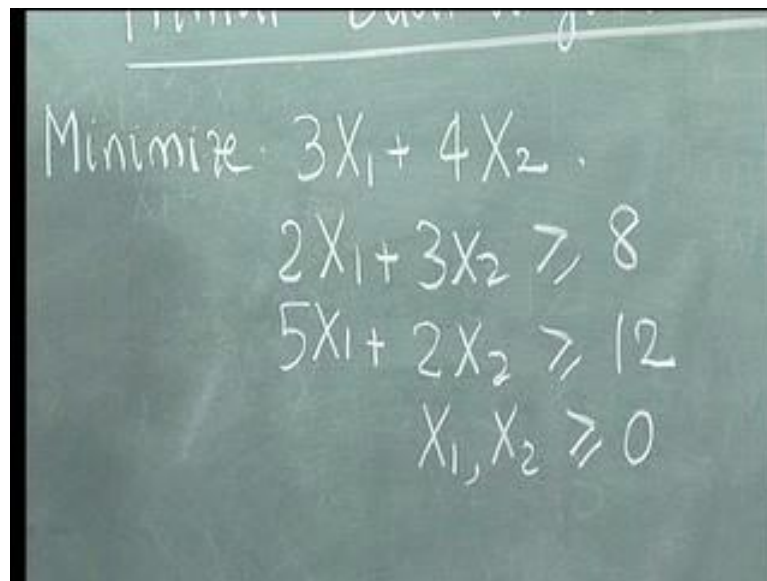 Minimize 3X₁ + 4X₂.
2X₁ + 3X₂ ≥ 8
5X₁ + 2X₂ ≥ 12
X₁, X₂ ≥ 0